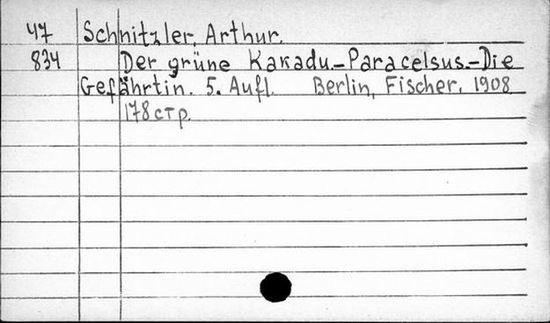 47 Schnitzler, Arthur.
834 Der grüne Kakadu.-Paracelsus.-Die
Gefährtin. 5. Aufl. Berlin, Fischer, 1908
178 стр.